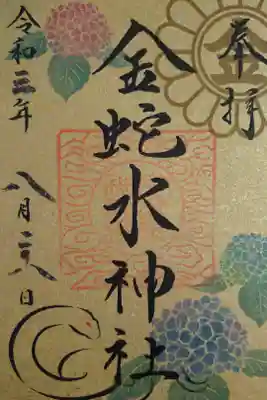 奉拝
金蛇水神社
令和三年
八月二八日